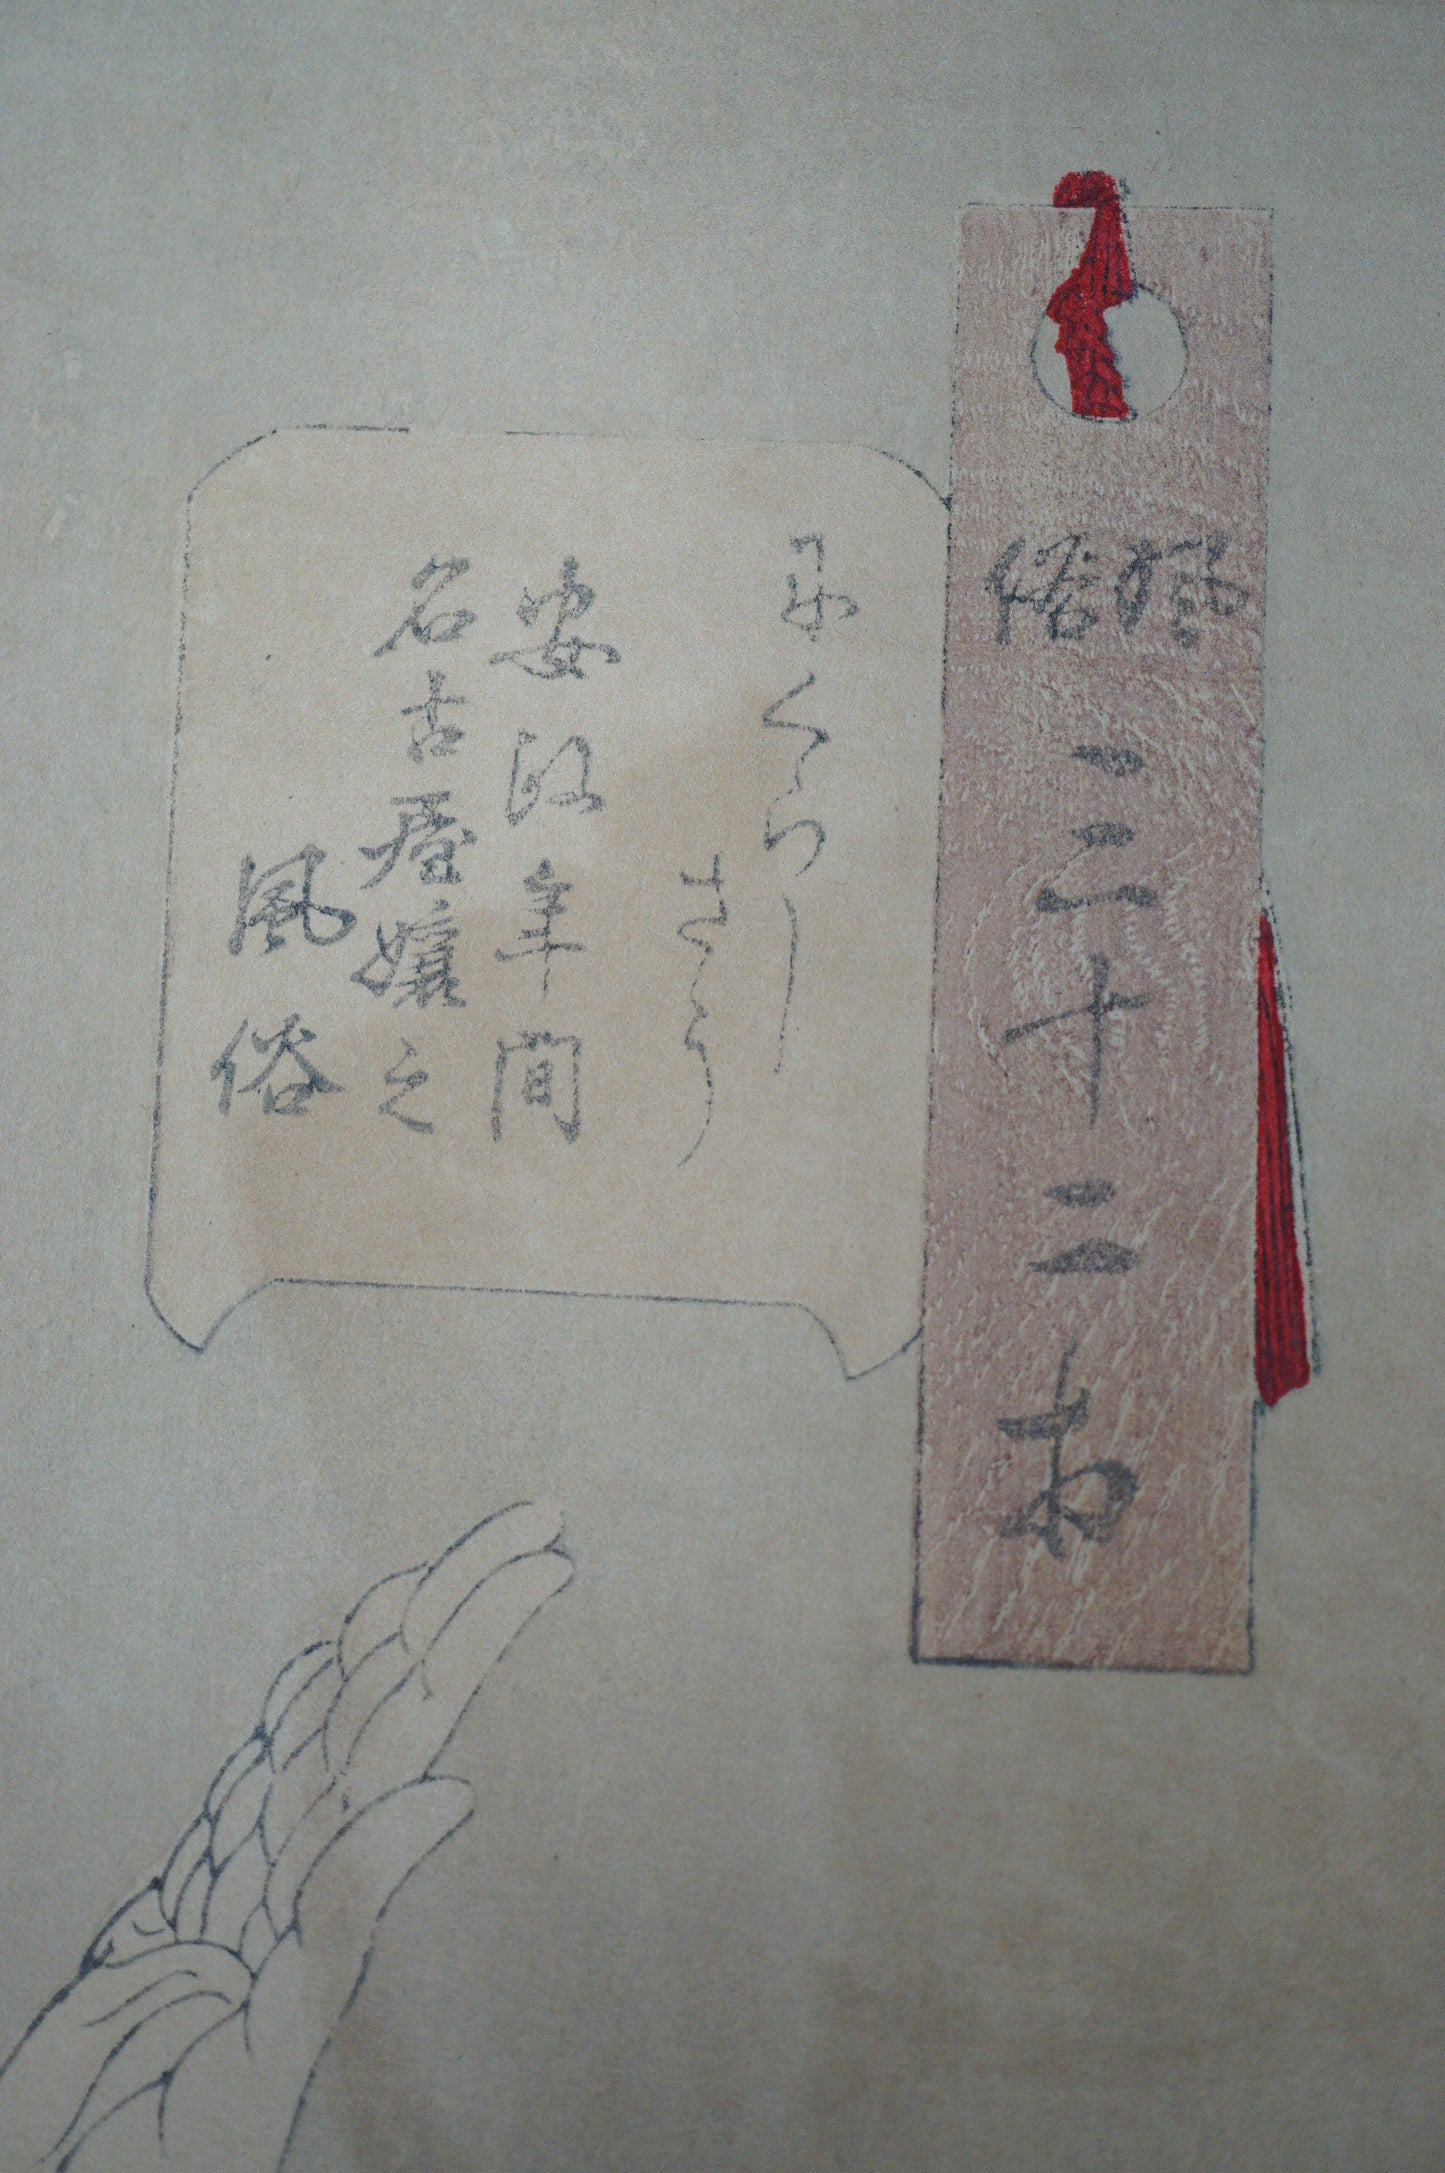 風俗三十二相
にくらしさう
安政年間
名古屋嬢之
風俗